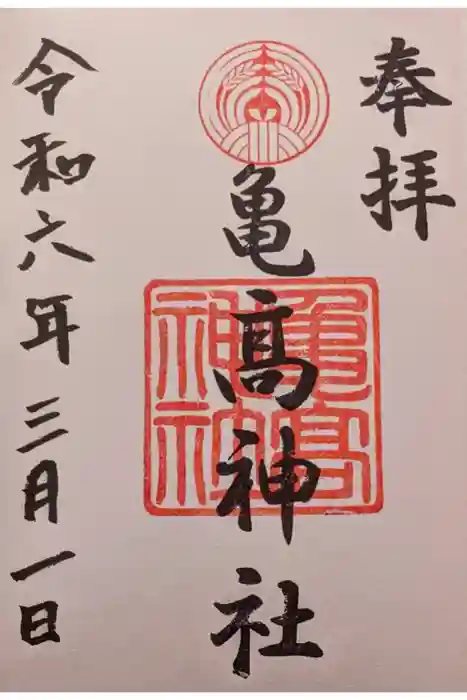 奉拝
亀髙神社
亀高
神社
令和六年三月一日